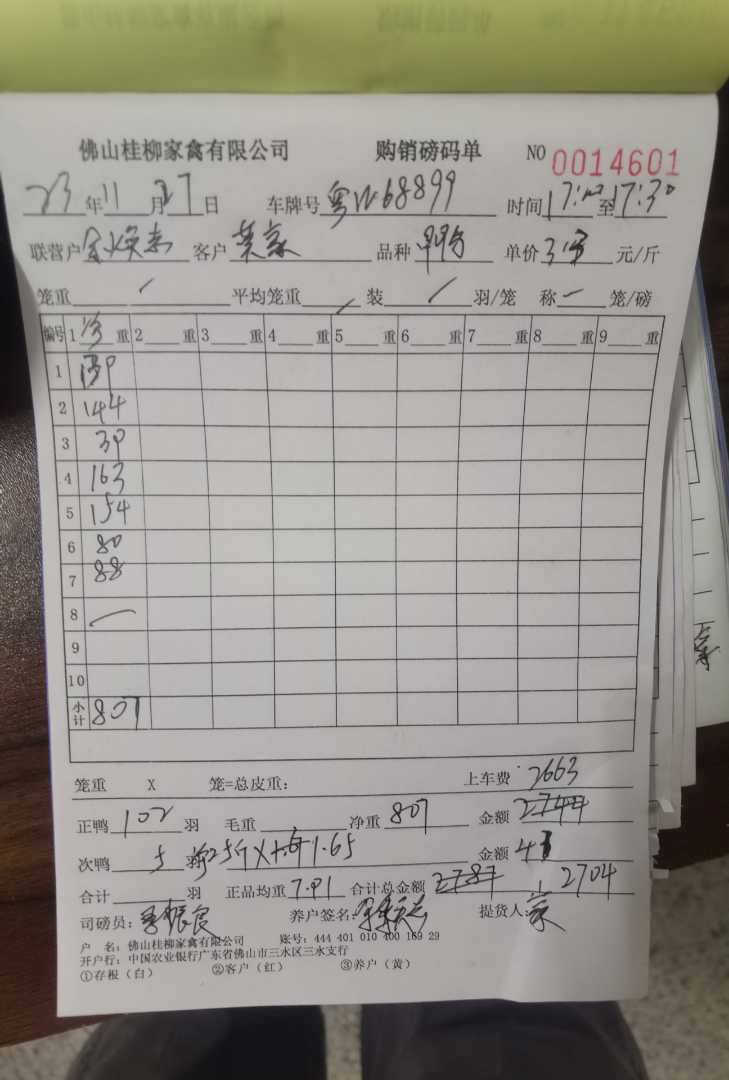 佛山桂柳家禽有限公司 购销磅码单 NO 0014601
23年11月27日 车牌号 粤W68899 时间 至17:30
联营户 客户 品种 单价 元/斤
笼重 平均笼重 装 羽/笼 称 笼/磅
编号 1 重 2 重 3 重 4 重 5 重 6 重 7 重 8 重 9 重
1 139
2 144
3 39
4 163
5 154
6 80
7 88
8
9
10
小计 807
笼重 X 笼=总皮重: 上车费 2663
正鸭 102 羽 毛重 净重 807 金额 2744
次鸭 5 羽 25斤X 1.65 金额
合计 羽 正品均重 7.91 合计总金额 2787 2704
司磅员: 养户签名: 提货人:
户 名: 佛山桂柳家禽有限公司 账号: 444 401 010 400 169 29
开户行: 中国农业银行广东省佛山市三水区三水支行
①存根(白) ②客户(红) ③养户(黄)